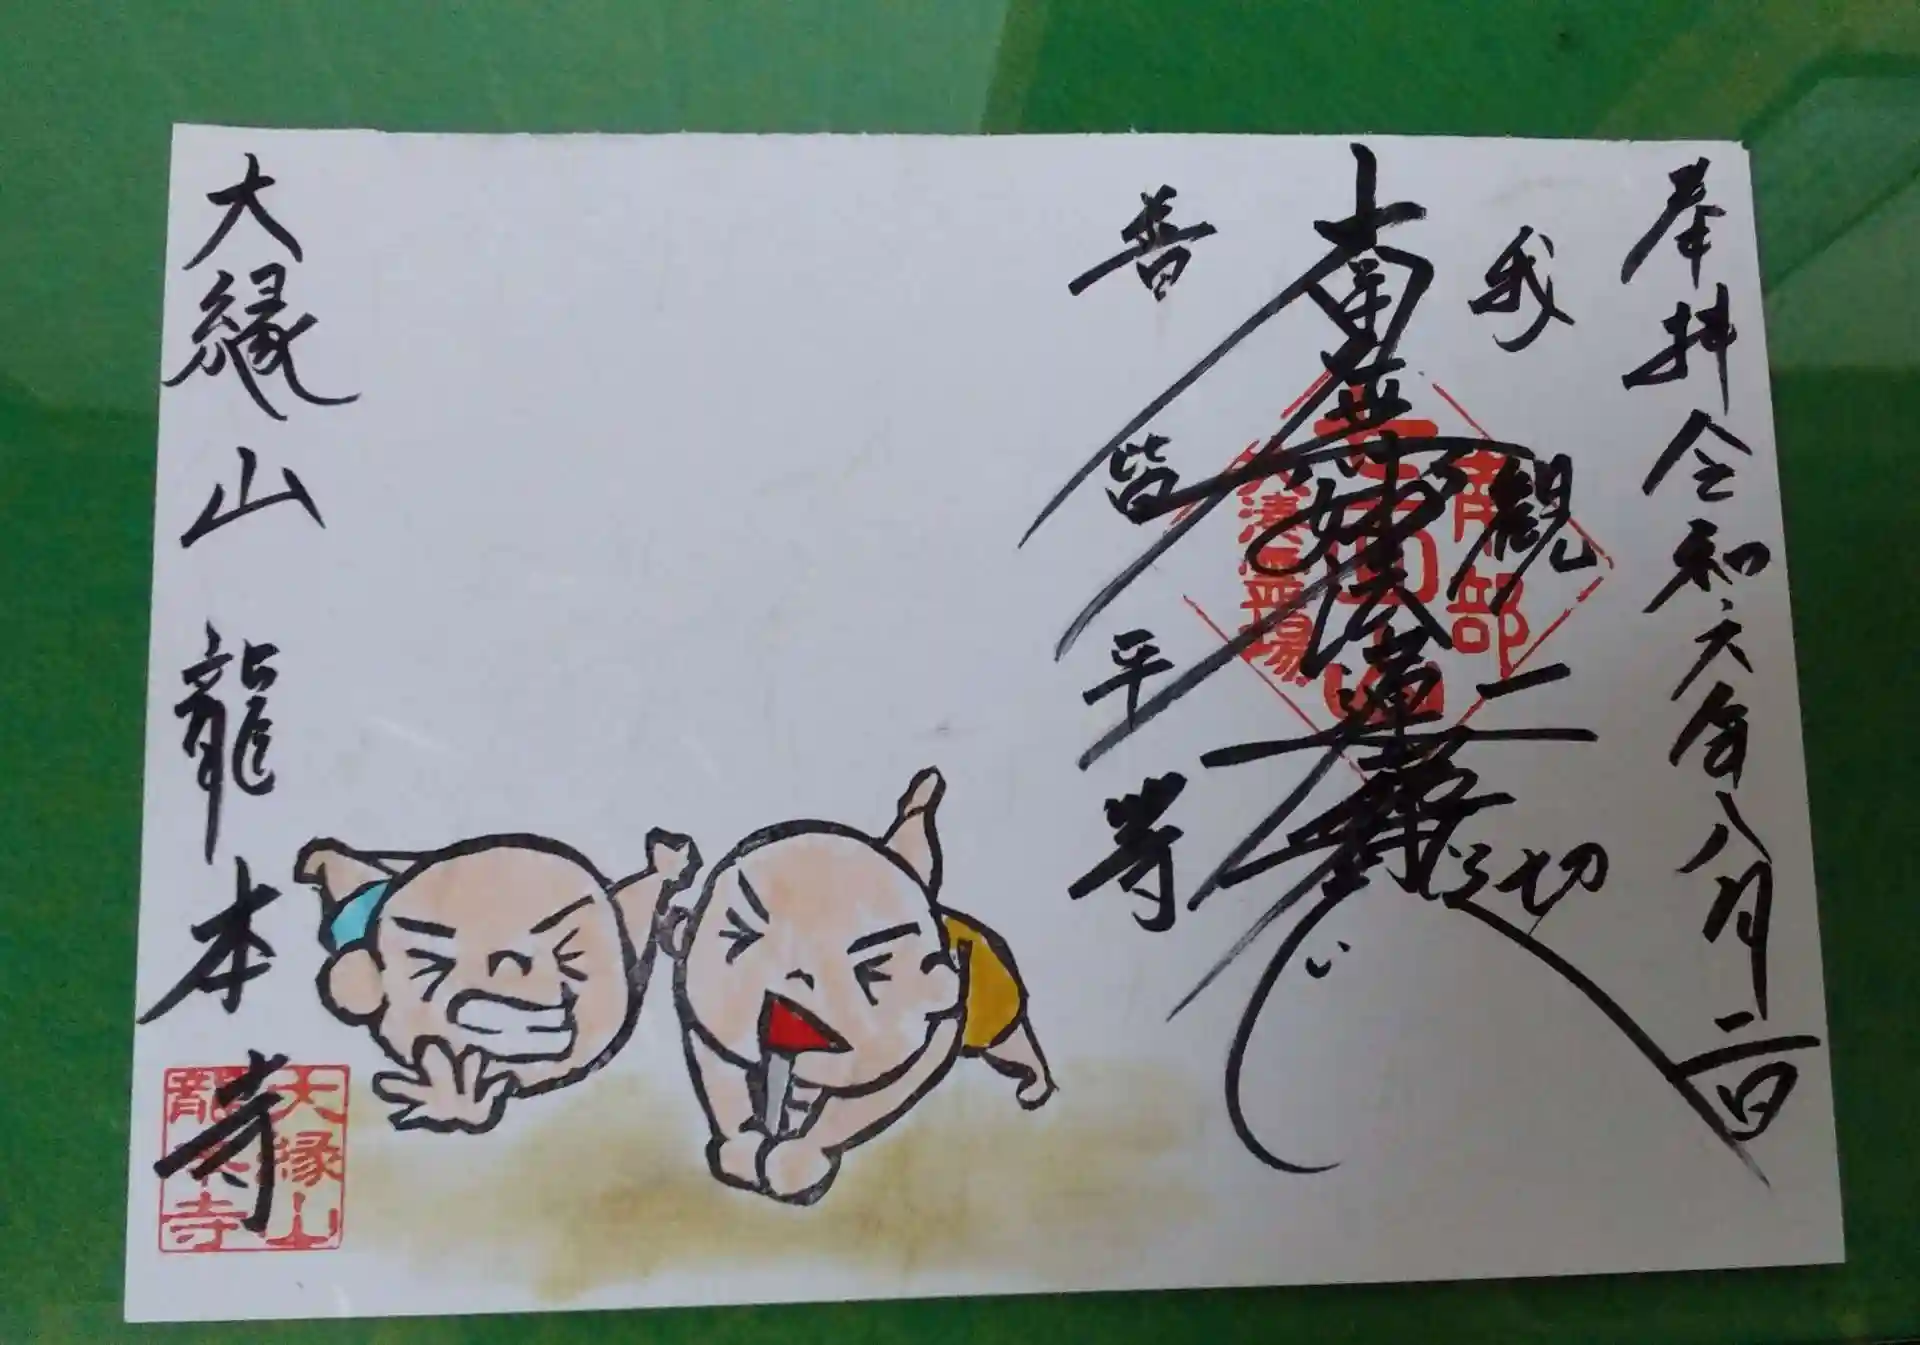 奉拝 令和六年八月二日
我観一切
南無妙法蓮華経
普皆平等
南部
大縁山 龍本寺
大縁山
龍本寺